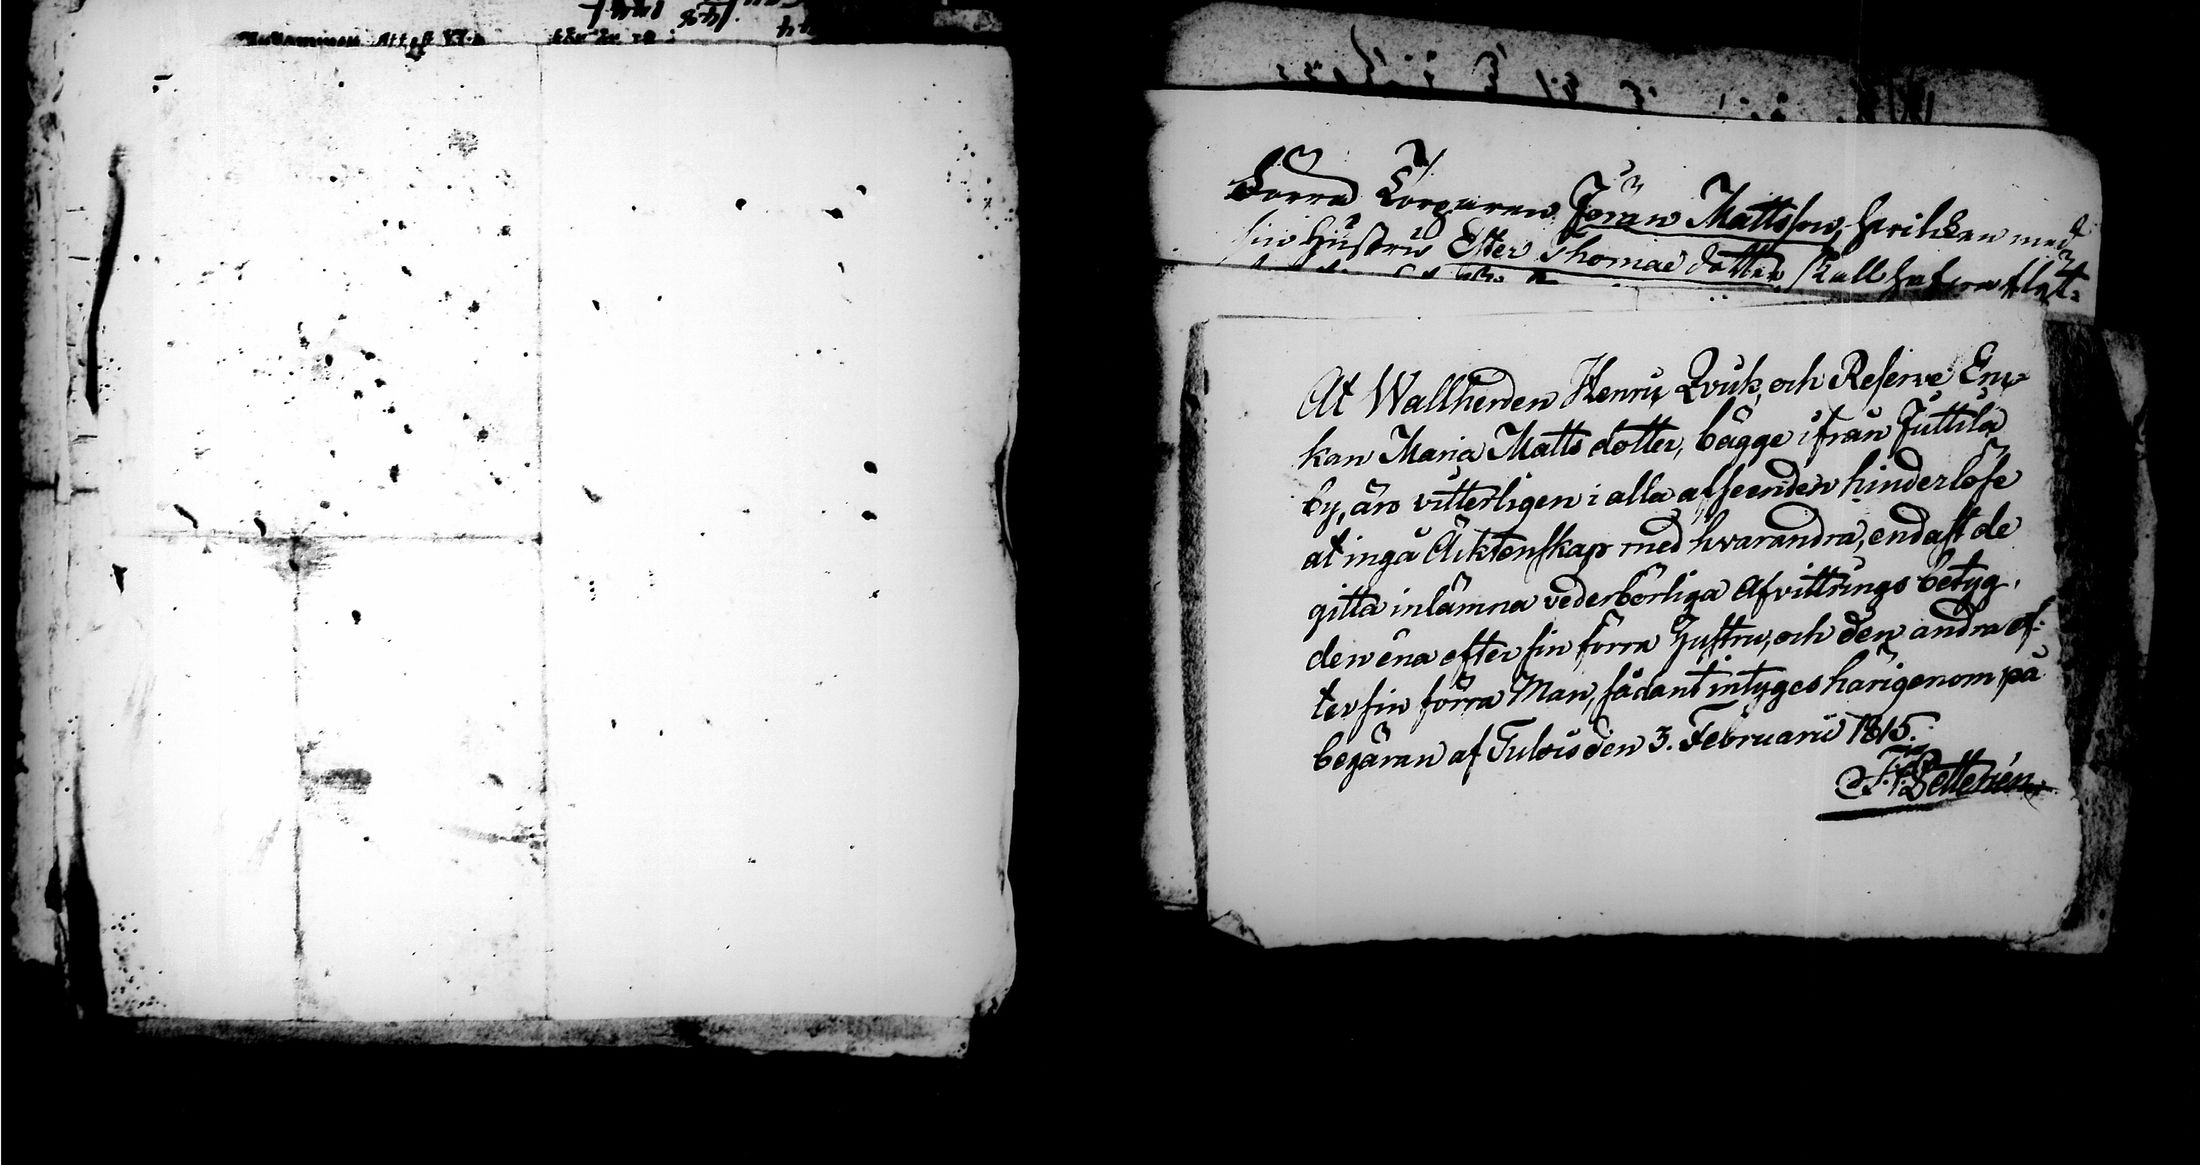 Förra Torparen Jöran Mattsson, hvilken med
sin Hustru Ester Thomæ dotter skall hafva flyt-
At Wallherden Henric Qvick, och Reserve En-
kan Maria Matts dotter, bägge ifrån Juttila
by, äro vitterligen i alla afseenden hinderlöse
at ingå Äcktenskap med hvarandra, endast de
gitta inlämna vederbörliga Afvittrings betyg,
den ena efter sin förra Hustru, och den andra ef-
ter sin förra Man, sådant intyges härigenom på
begäran af Tulois den 3. Februarii 1815.